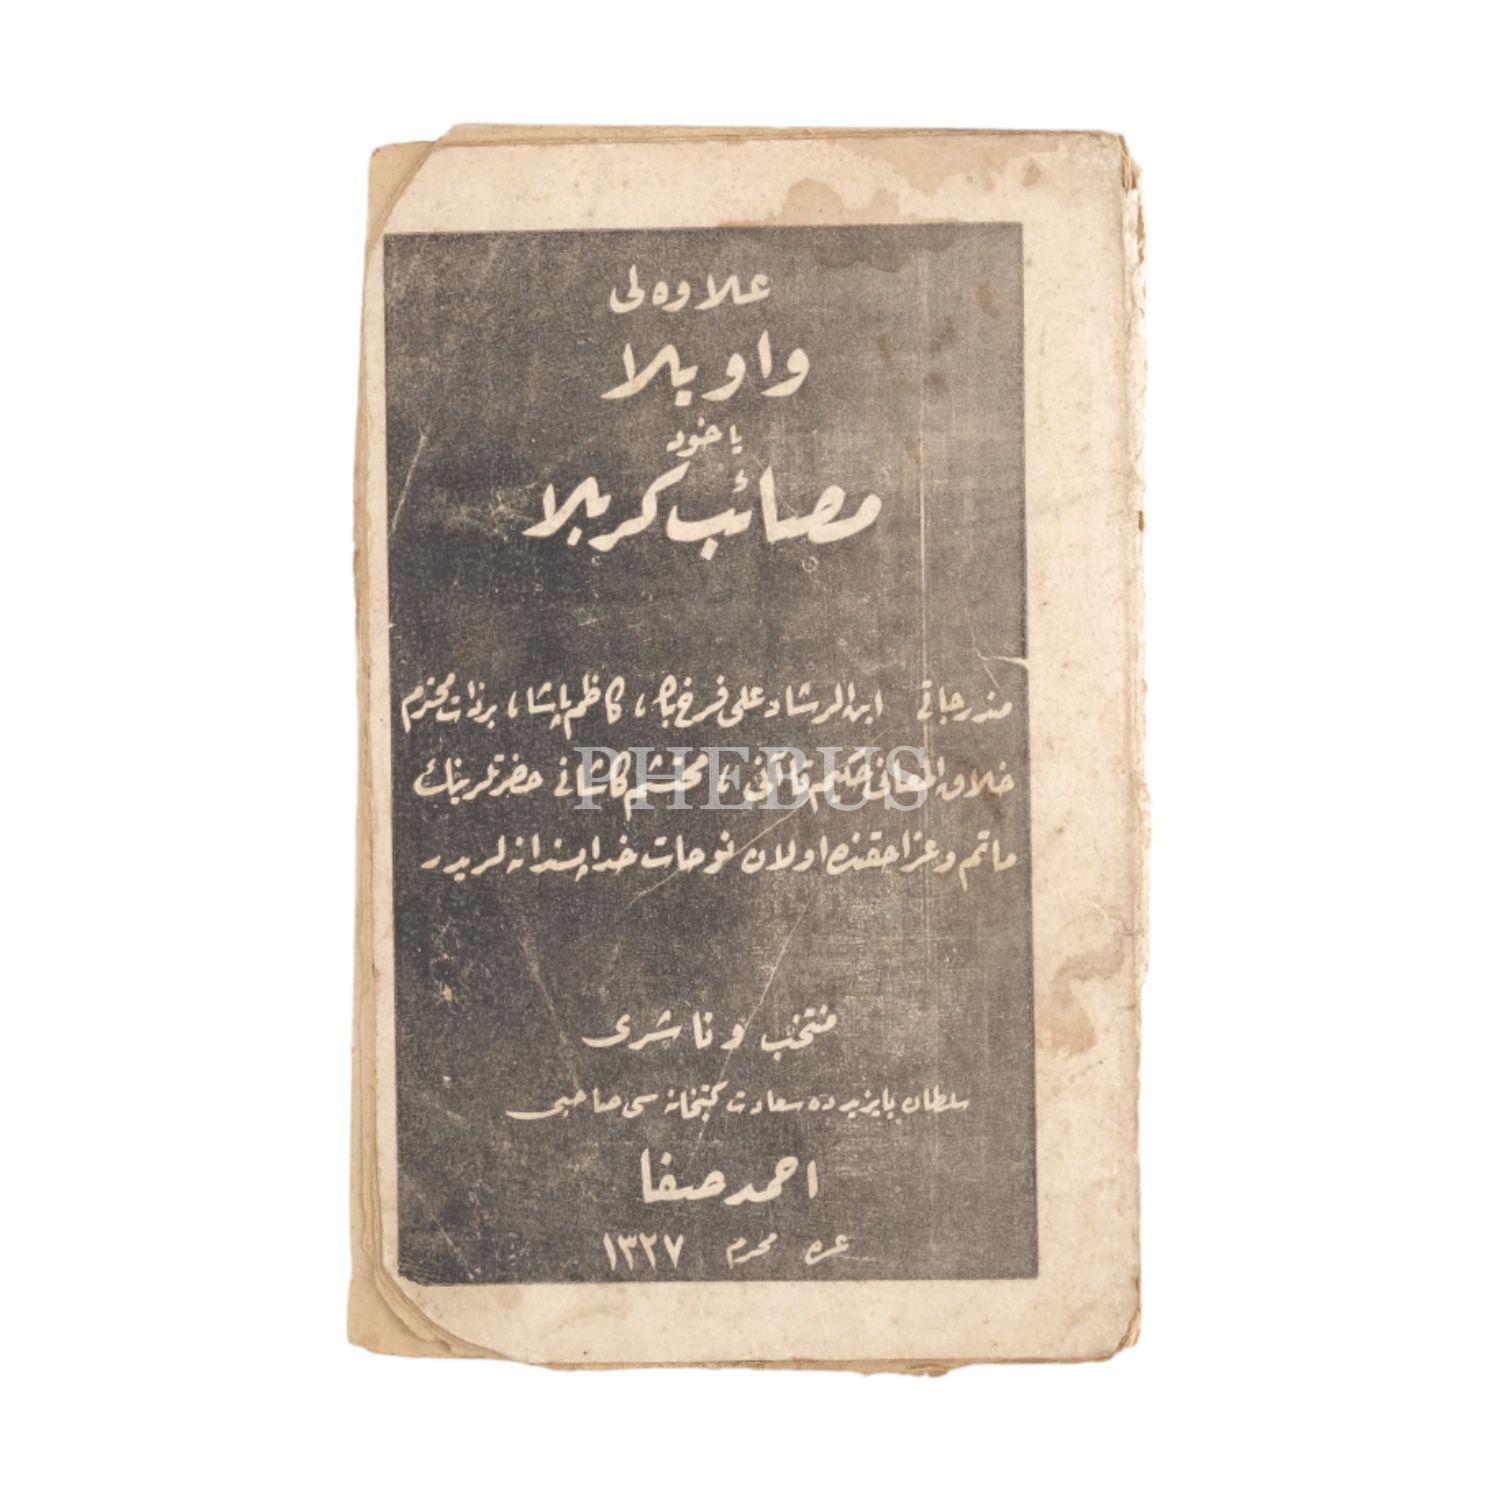 علاوه لی
واویلا
یاخود
مصائب کربلا
مندرجاتی ابن الرشاد علی فرخ بك ، کاظم پاشا ، بر ذات محترم
خلاق المعانی حکیم قاآنی ، محتشم کاشانی حضرتلرینك
ماتم و عزا حقنده اولان نوحات خداپسندانه لریدر
منتخب و ناشری
سلطان بایزیدده سعادت کتبخانه سی صاحبی
احمد صفا
غره محرم ١٣٢٧
PHEBUS